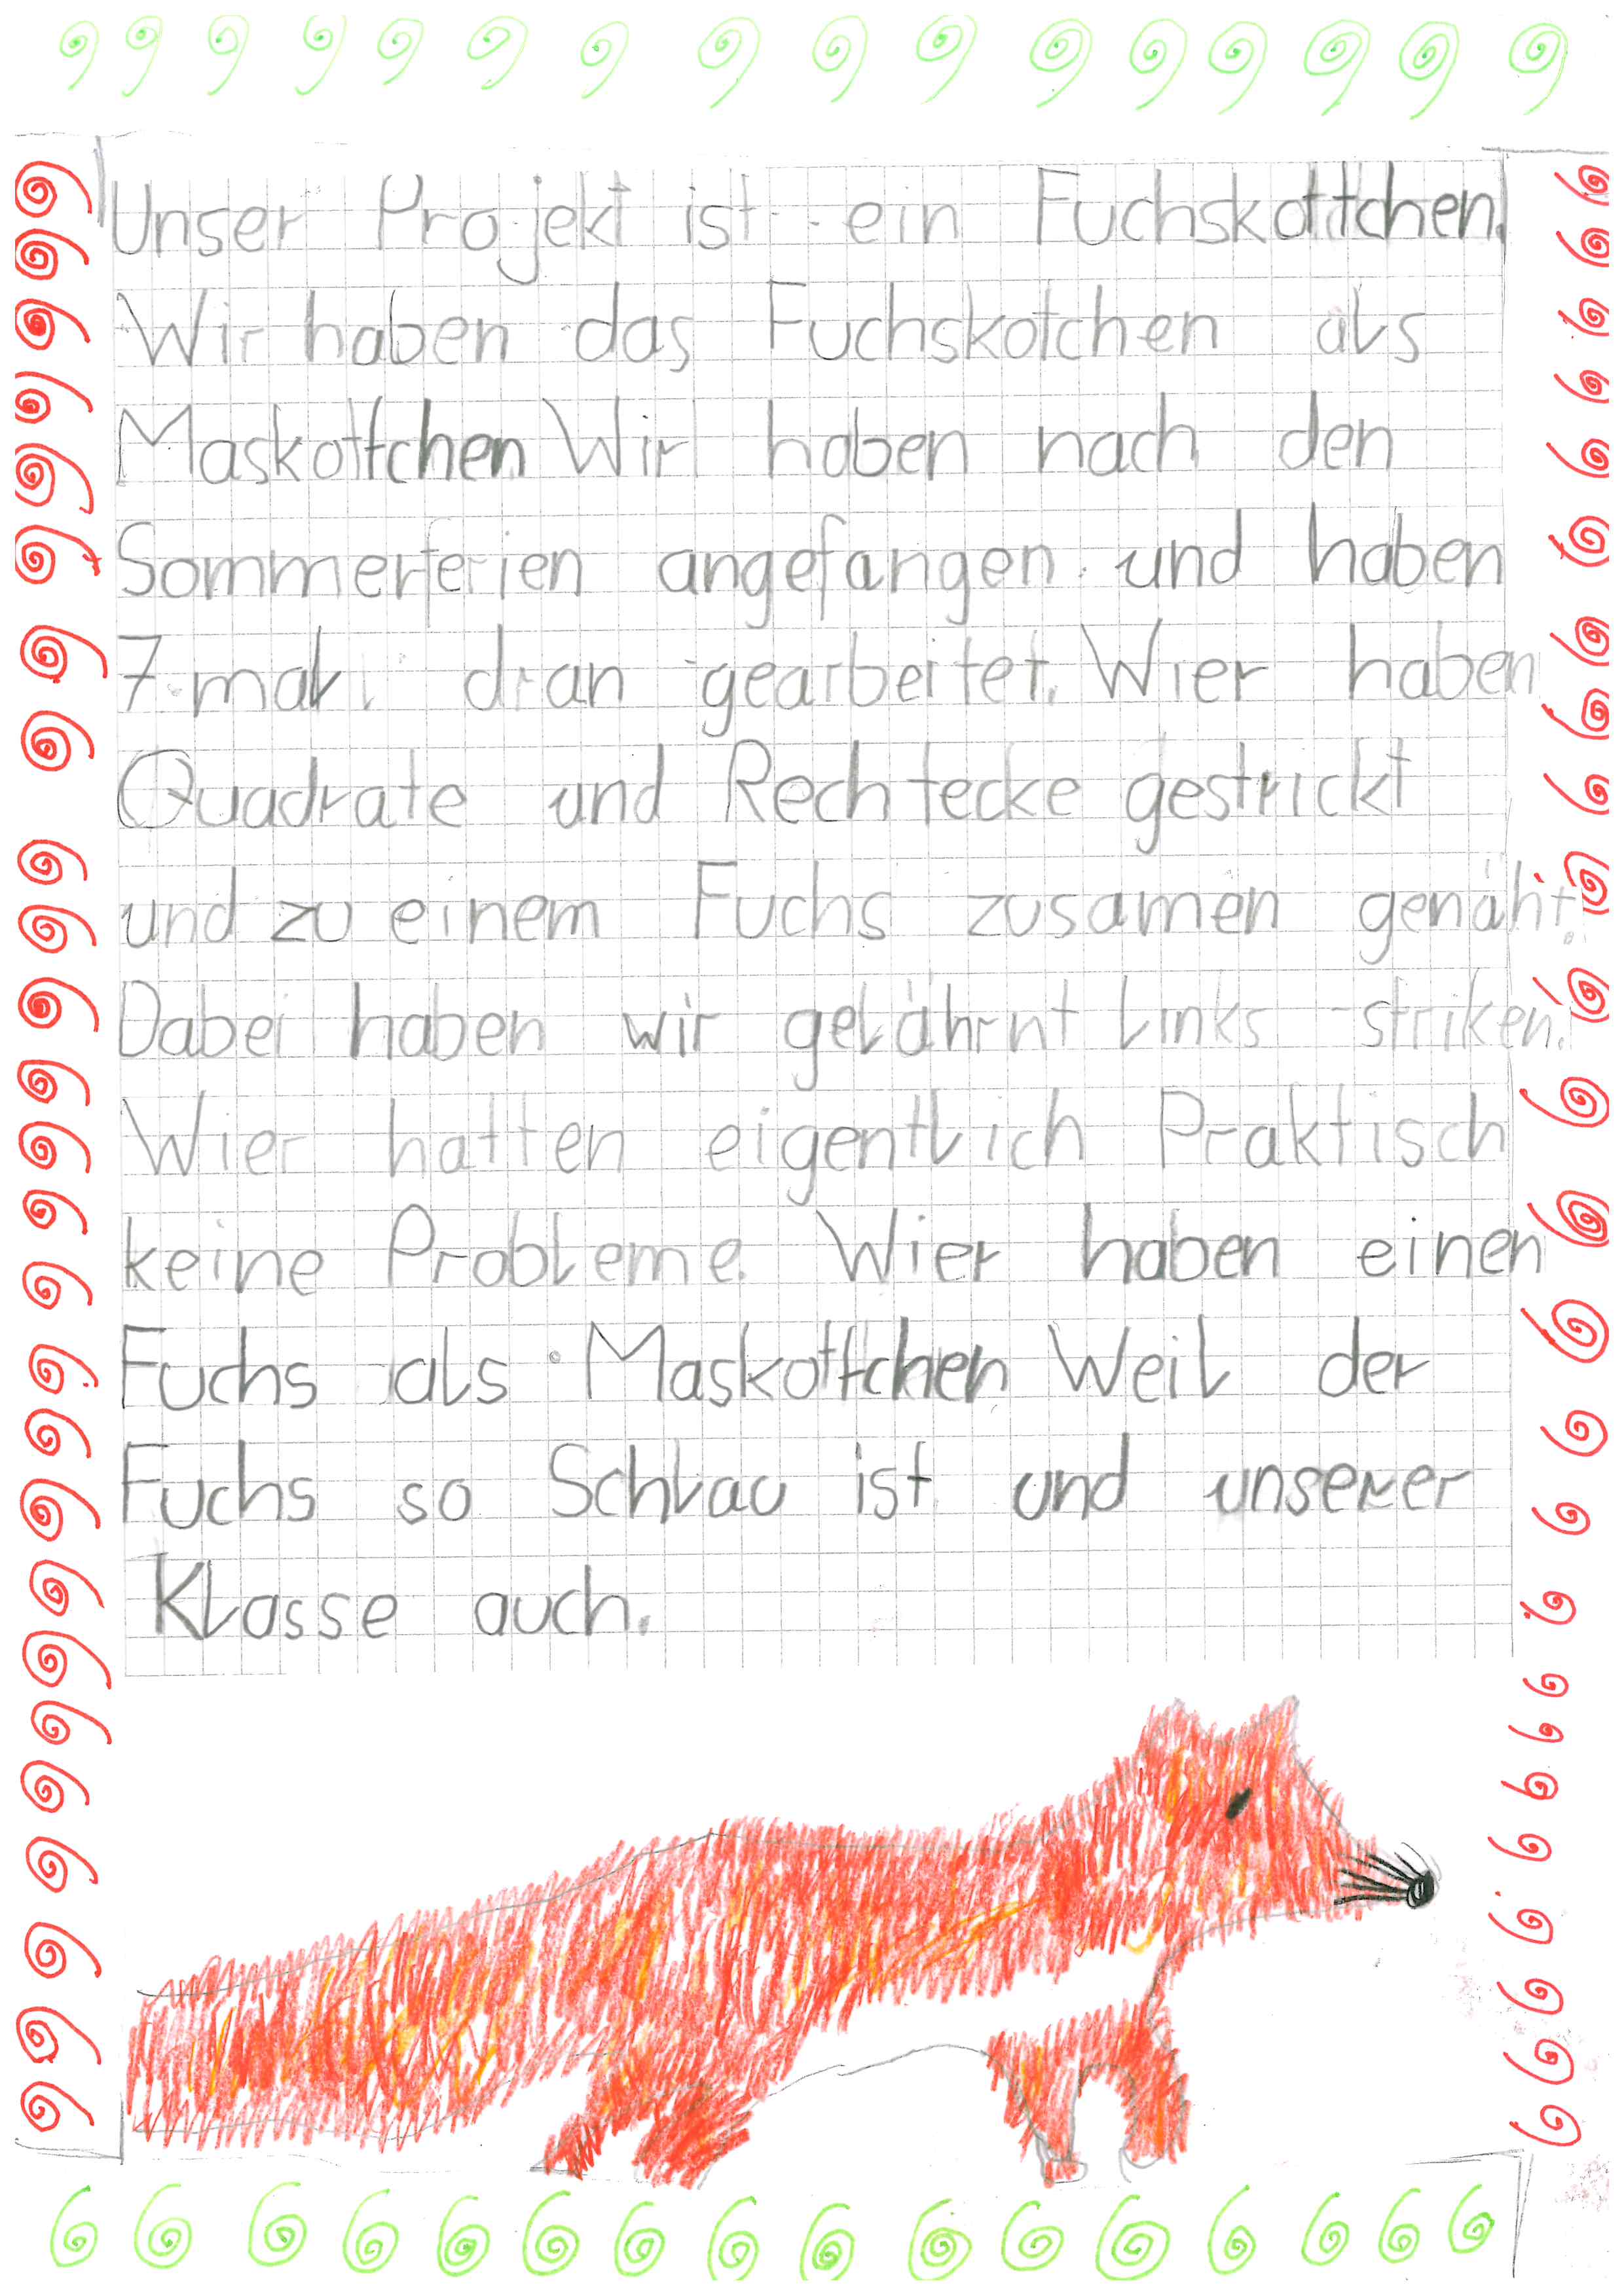 Unser Projekt ist ein Fuchskottchen.
Wir haben das Fuchskotchen als
Maskottchen Wir haben nach den
Sommerferien angefangen und haben
7 mal dran gearbeitet. Wier haben
Quadrate und Rechtecke gestrickt
und zu einem Fuchs zusamen genäht.
Dabei haben wir gelährnt Links striken.
Wier hatten eigentlich Praktisch
keine Probleme. Wier haben einen
Fuchs als Maskottchen Weil der
Fuchs so Schlau ist und unserer
Klasse auch.